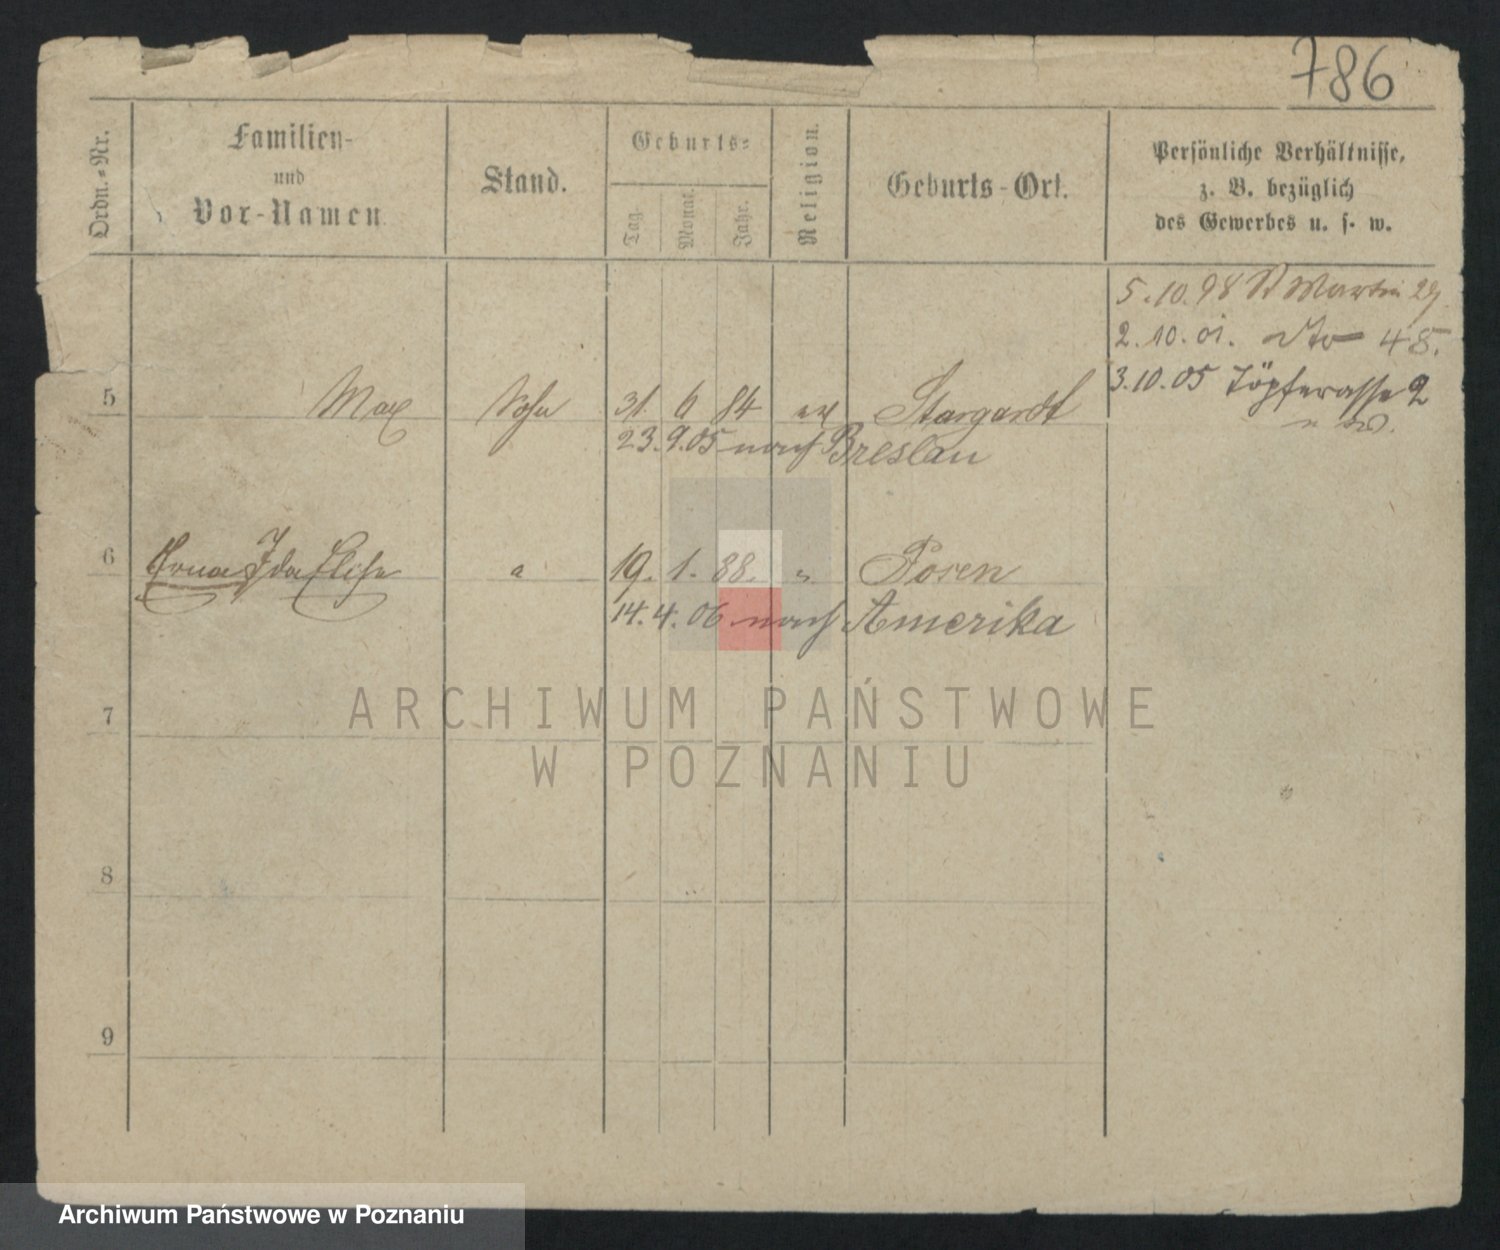 786
Ordn.-Nr.
Familien-
und
Vor-Namen
Stand.
Geburts-
Tag.
Monat.
Jahr.
Religion.
Geburts-Ort.
Persönliche Verhältnisse,
z. B. bezüglich
des Gewerbes u. s. w.
5.10.98 St Martin 29
2.10.01. dto 48.
3.10.05 Töpferasse 2
5 Max Sohn 31 6 84 ev Stargardt
23.9.05 nach Breslau
6 Erna Ida Elise 19. 1. 88. " Posen
14.4.06 nach Amerika
7
8
9
ARCHIWUM PAŃSTWOWE
W POZNANIU
Archiwum Państwowe w Poznaniu